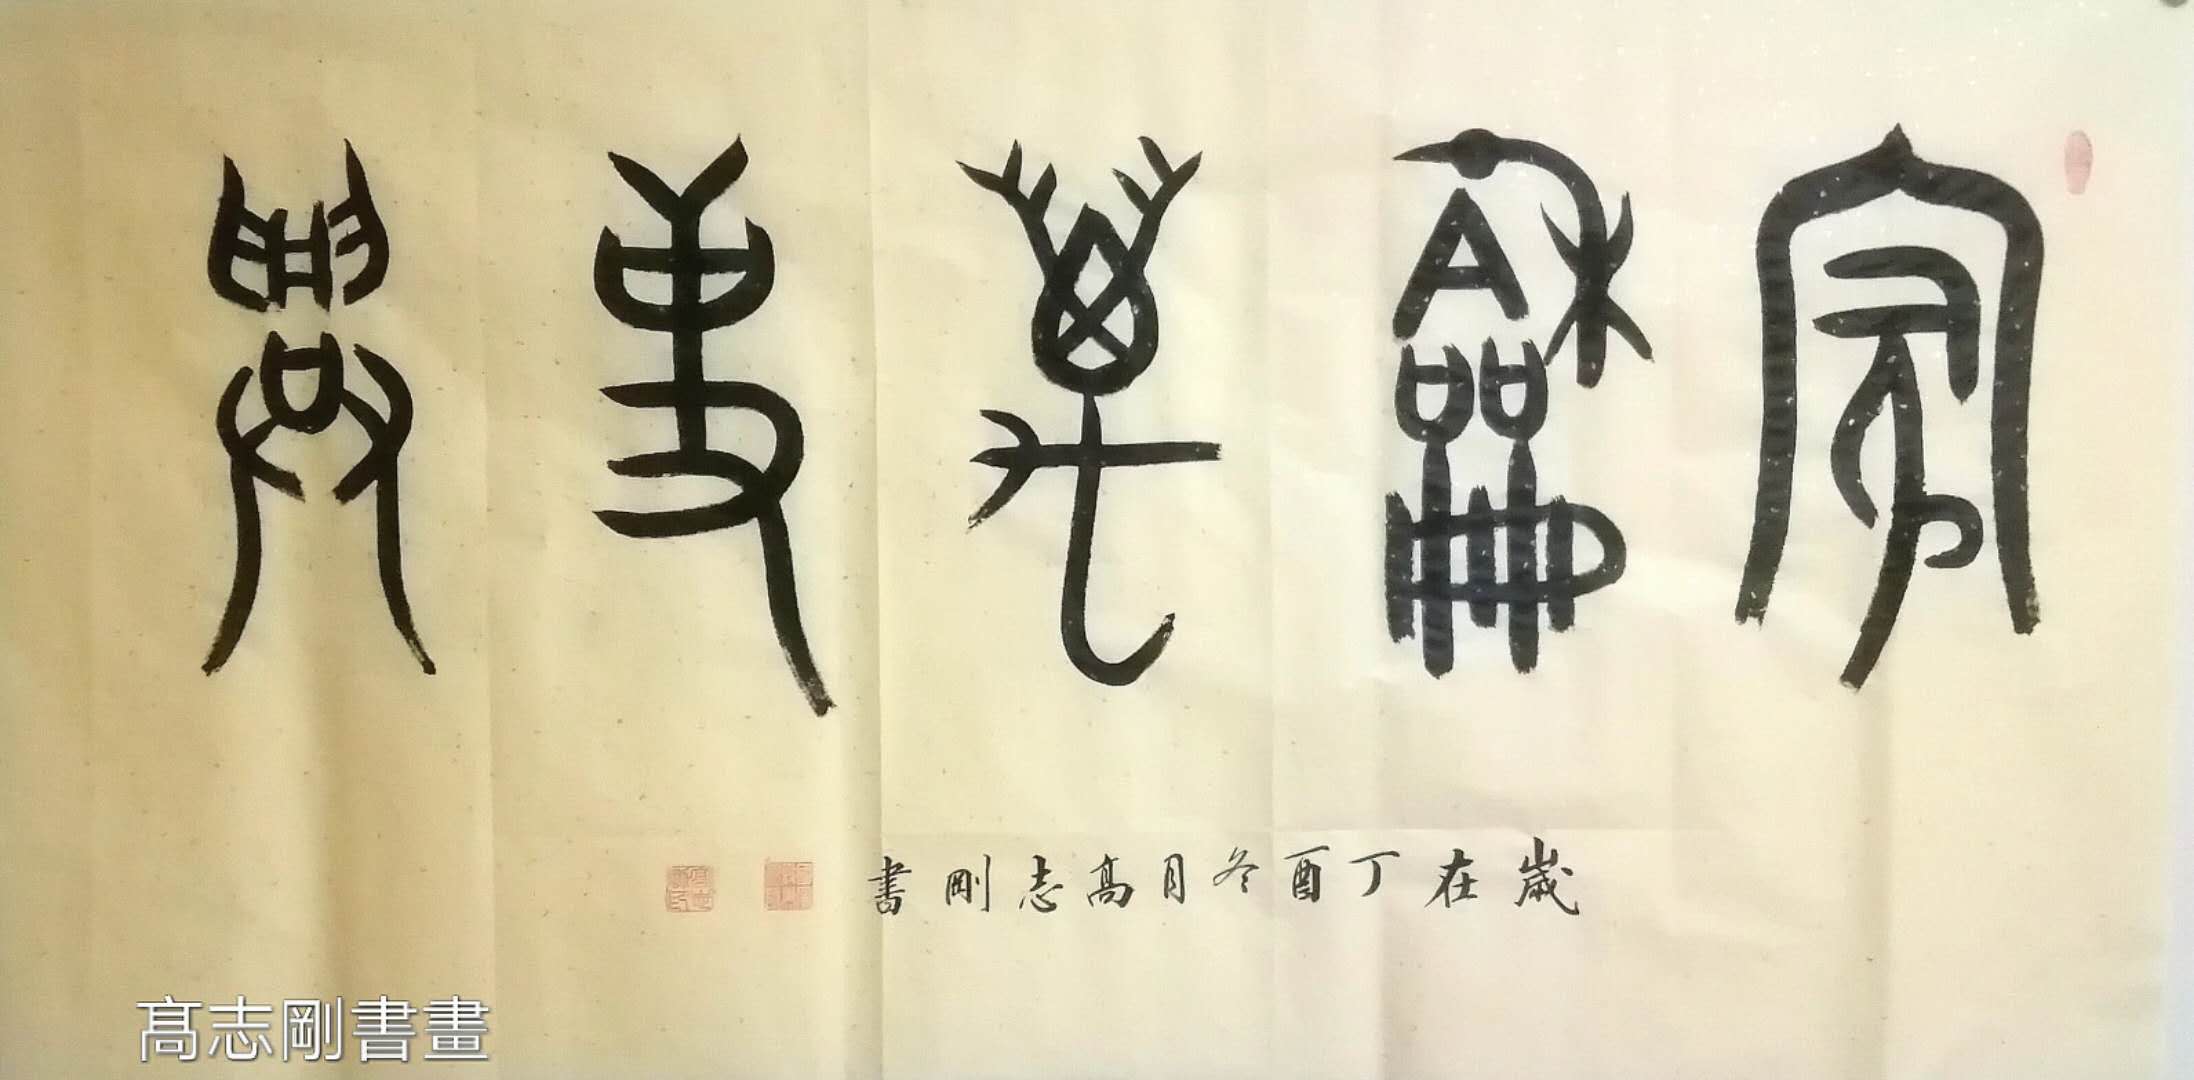 家龢萬事興
歲在丁酉冬月髙志剛書
髙志剛書畫